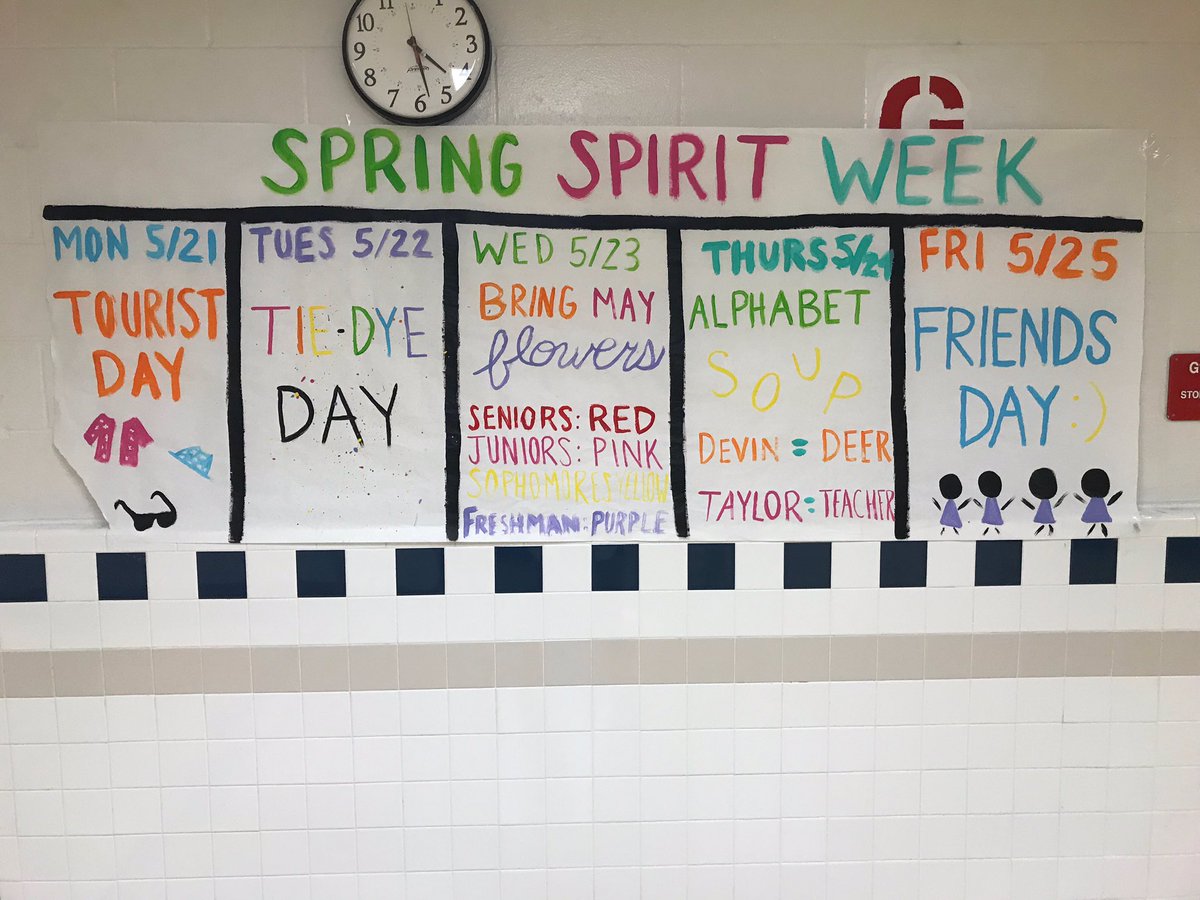 11
10
2
9
3
8
4
7
6
5
G
SPRING SPIRIT WEEK
MON 5/21
TOURIST
DAY
TUES 5/22
TIE-DYE
DAY
WED 5/23
BRING MAY
flowers
SENIORS: RED
JUNIORS: PINK
SOPHOMORES: YELLOW
FRESHMAN: PURPLE
THURS 5/24
ALPHABET
SOUP
DEVIN = DEER
TAYLOR = TEACHER
FRI 5/25
FRIENDS
DAY :)
G
STO